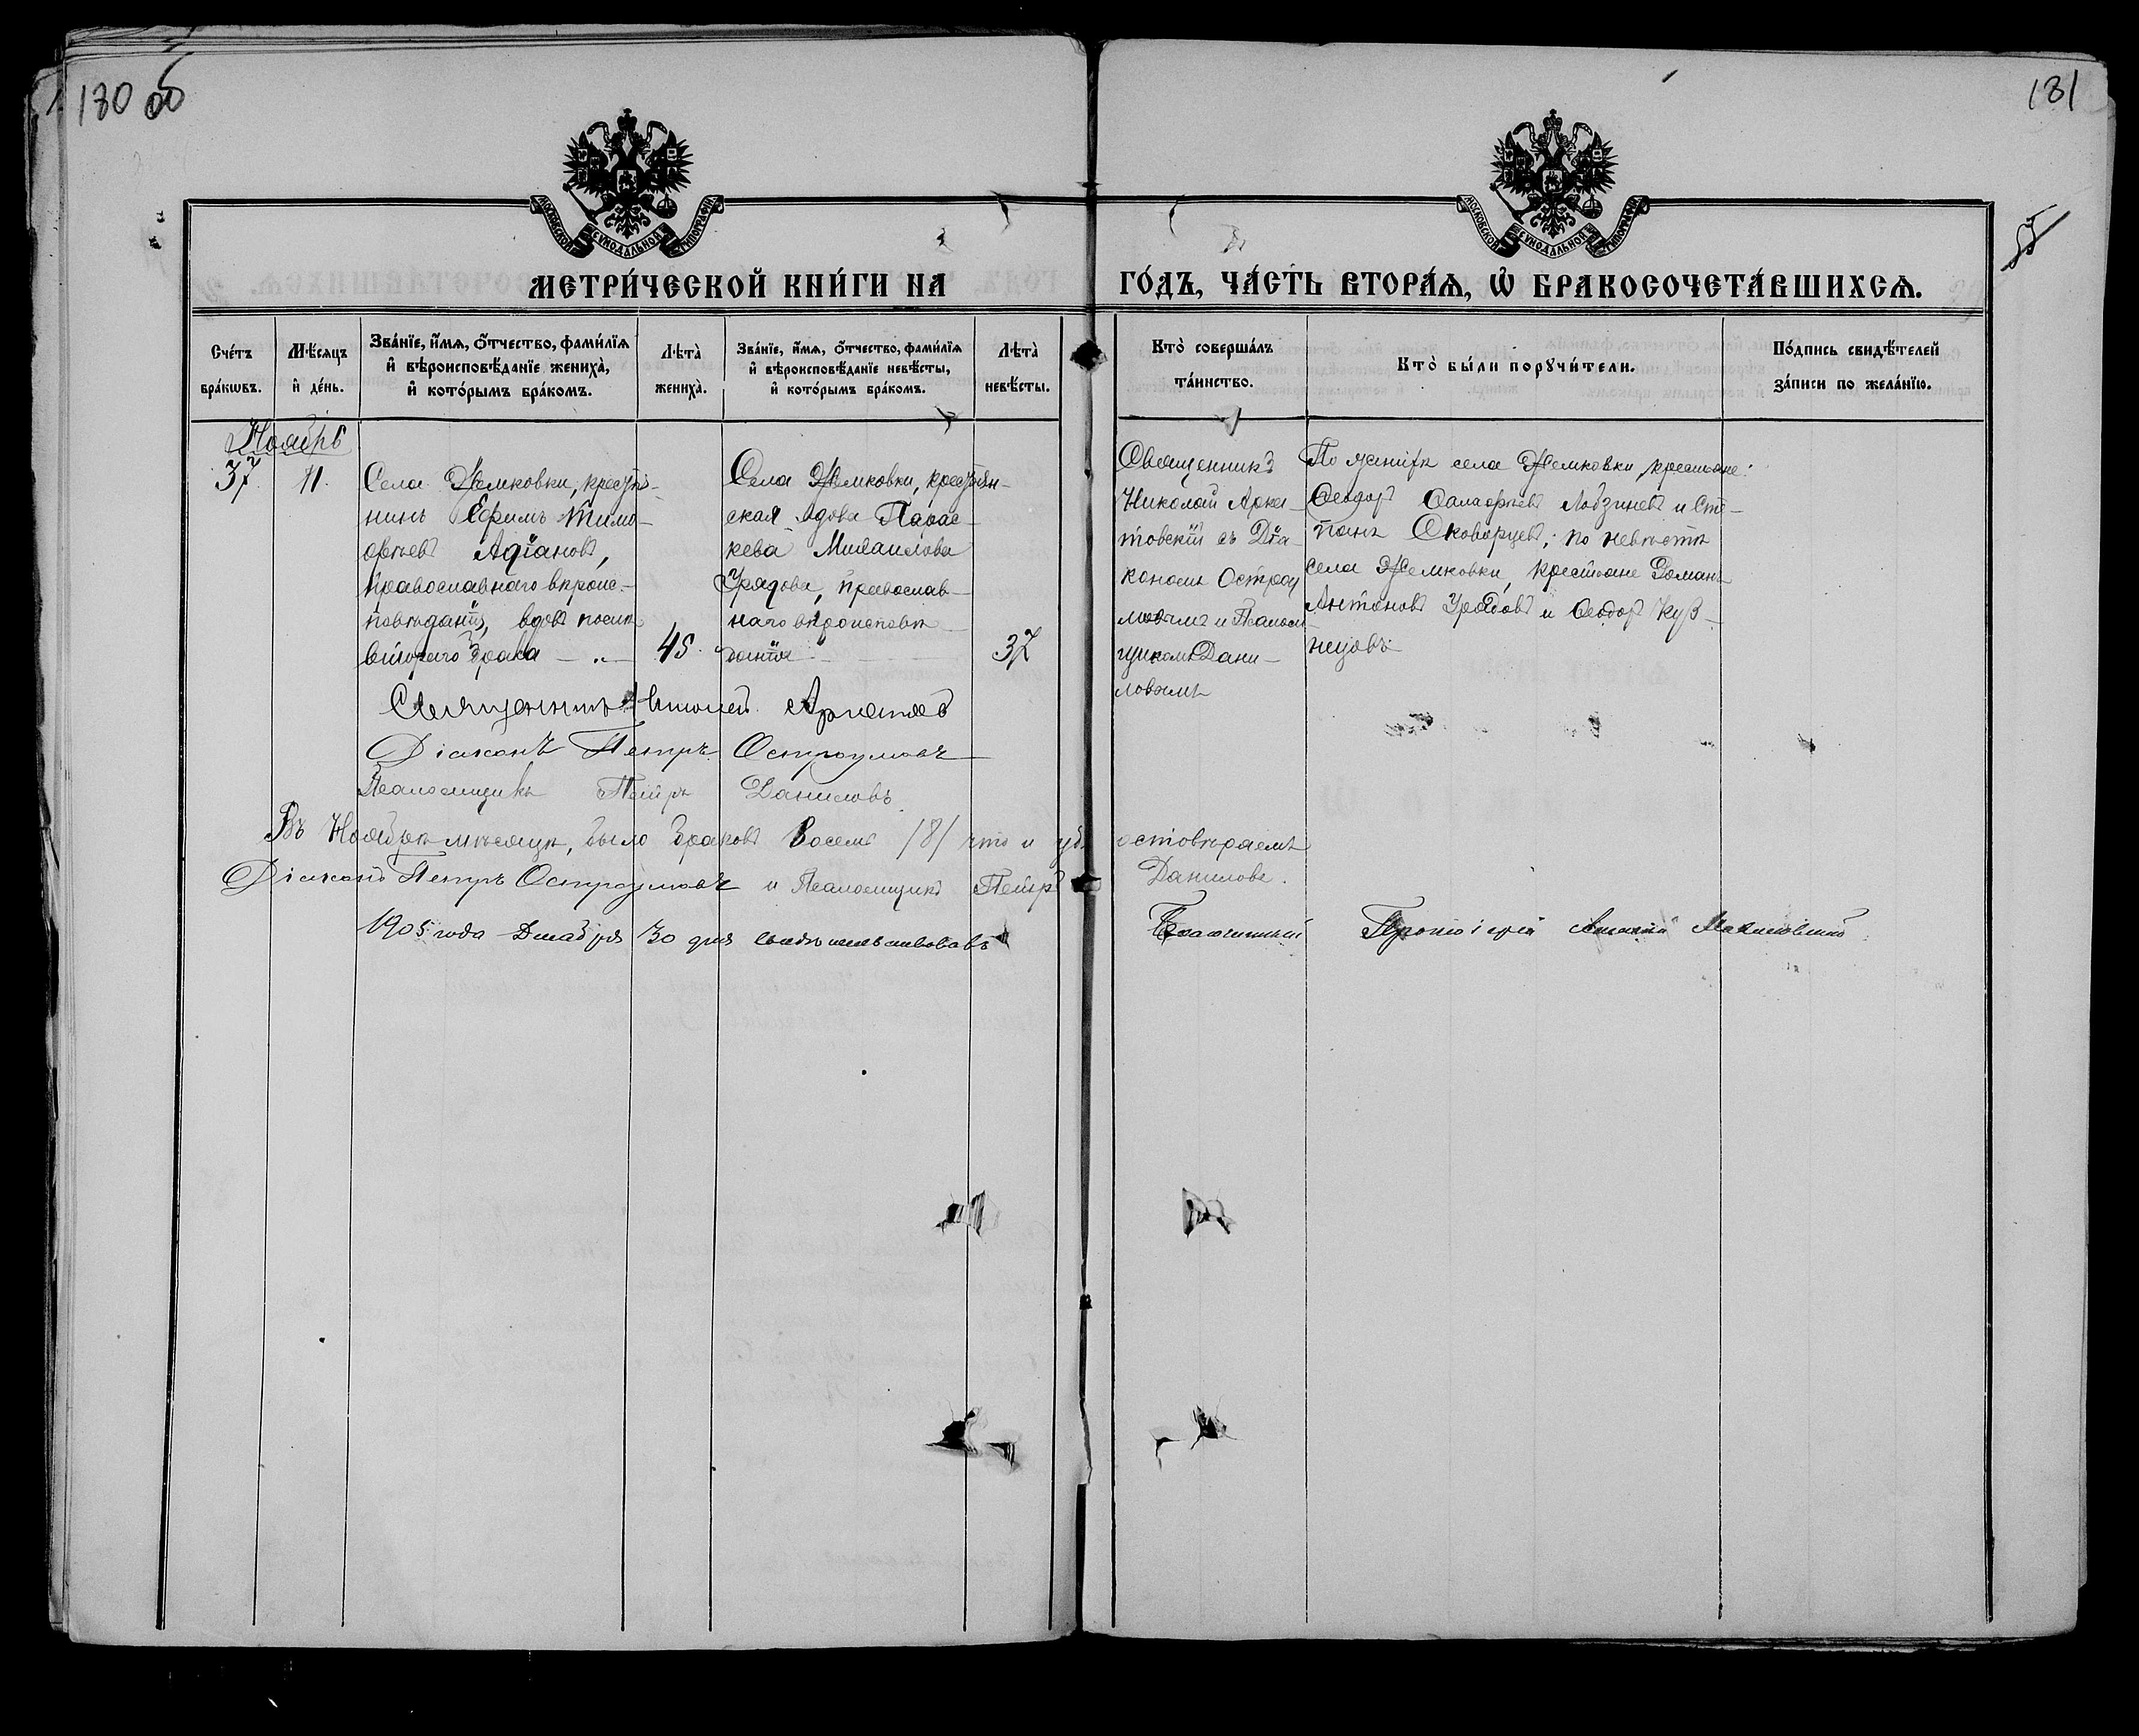 180 об
181
МОСКОВСКОЙ СѴНОДАЛЬНОЙ ТИПОГРАФІИ
МОСКОВСКОЙ СѴНОДАЛЬНОЙ ТИПОГРАФІИ
МЕТРИ́ЧЕСКОЙ КНИ́ГИ НА
ГО́ДЪ, ЧА́СТЬ ВТОРА́Ѧ, Ѽ БРАКОСОЧЕТА́ВШИХСѦ.
Сче́тъ
бра́кѡвъ.
Мѣ́сяцъ
и҆ де́нь.
Зва́нїе, и҆́мѧ, ѻ҆́тчество, фами́лїѧ
и҆ вѣроисповѣ́данїе жениха̀,
и҆ кото́рымъ бра́комъ.
Лѣта̀
жениха̀.
Зва́нїе, и҆́мѧ, ѻ҆́тчество, фами́лїѧ
и҆ вѣроисповѣ́данїе невѣ́сты,
и҆ кото́рымъ бра́комъ.
Лѣта̀
невѣ́сты.
Кто̀ соверша́лъ
та́инство.
Кто̀ бы́ли порꙋчи́тели.
По́дпись свидѣ́телей
за́писи по жела́нїю.
Ноябрь
37. 11.
Села Жемковки, кресть-
нинъ Ефимъ Тимо-
феевъ Адіановъ,
православнаго вѣроис-
повѣданія, вдовъ послѣ
второго брака — „ —
45.
Села Жемковки, крестьян-
ская вдова Парас-
кева Михаилова
Урядова, православ-
наго вѣроисповѣ-
данія
37
Священникъ
Николай Арха-
товскій съ Діа-
кономъ Остроу
мовымъ и Псалом
щикомъ Дани-
ловымъ
По женихѣ села Жемковки, крестьяне:
Ѳеодоръ Лобзиневъ и Сте-
панъ Сковорцевъ; по невѣстѣ
села Жемковки, крестьяне Романъ
Антоновъ Урядовъ и Ѳеодоръ Куз-
нецовъ
Священникъ Николай
Діаконъ Петръ Остроумовъ
Псаломщикъ Петръ Даниловъ
Въ Ноябрѣ мѣсяцѣ, было браковъ восемь /8/ что и удостовѣряемъ
Діаконъ Петръ Остроумовъ и Псаломщикъ Петръ Даниловъ.
1905 года Декабря 30 дня свидѣтельствовалъ Благочинный Протоіерей